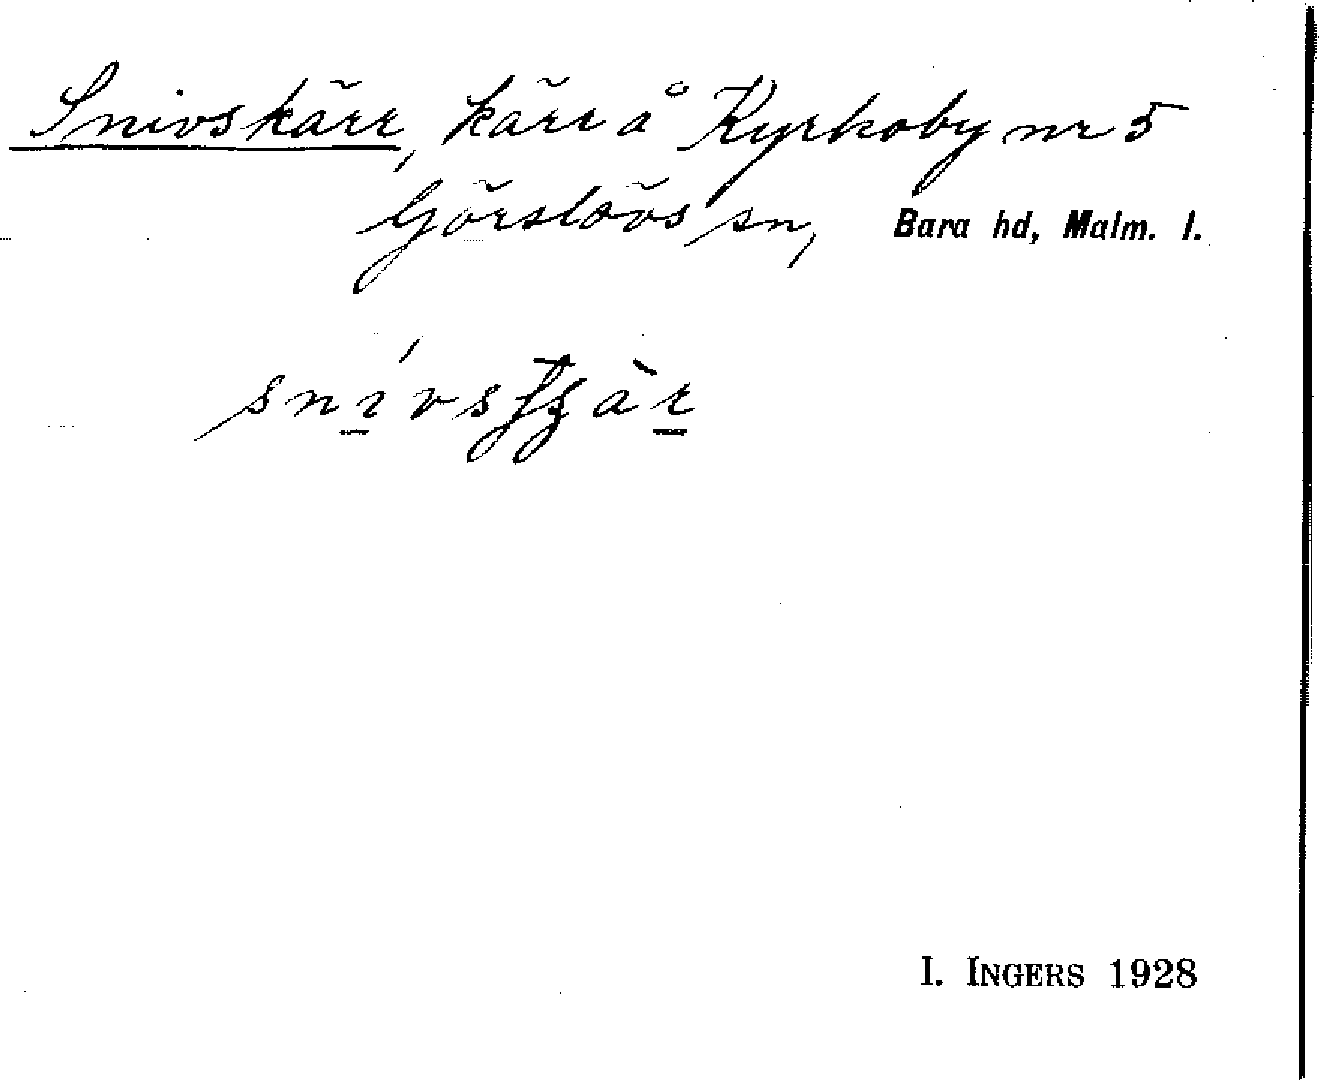 Snivskärr, kärr å Kyrkoby nr 5
Görslövs sn, Bara hd, Malm. l.
I. INGERS 1928